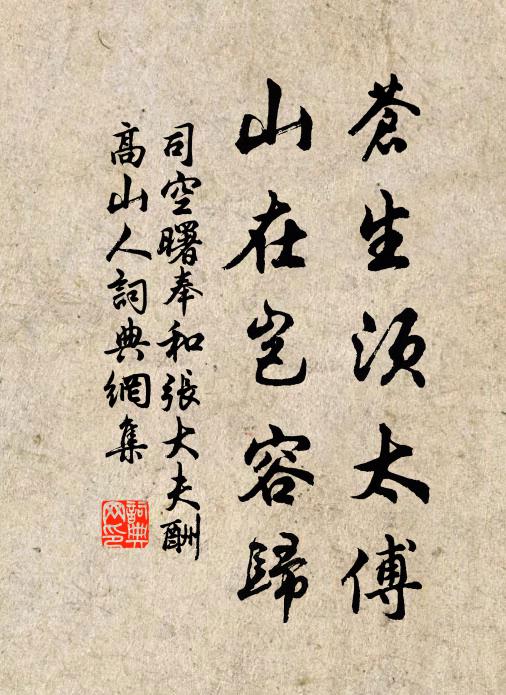 蒼生須太傅
山在豈容歸
司空曙奉和張大夫酬
高山人詞典網集
詞典
网印